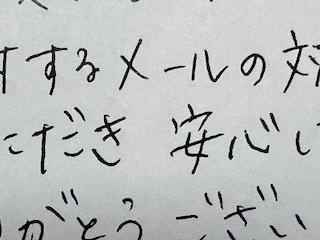 するメールの対
ただき 安心い
がとうござい